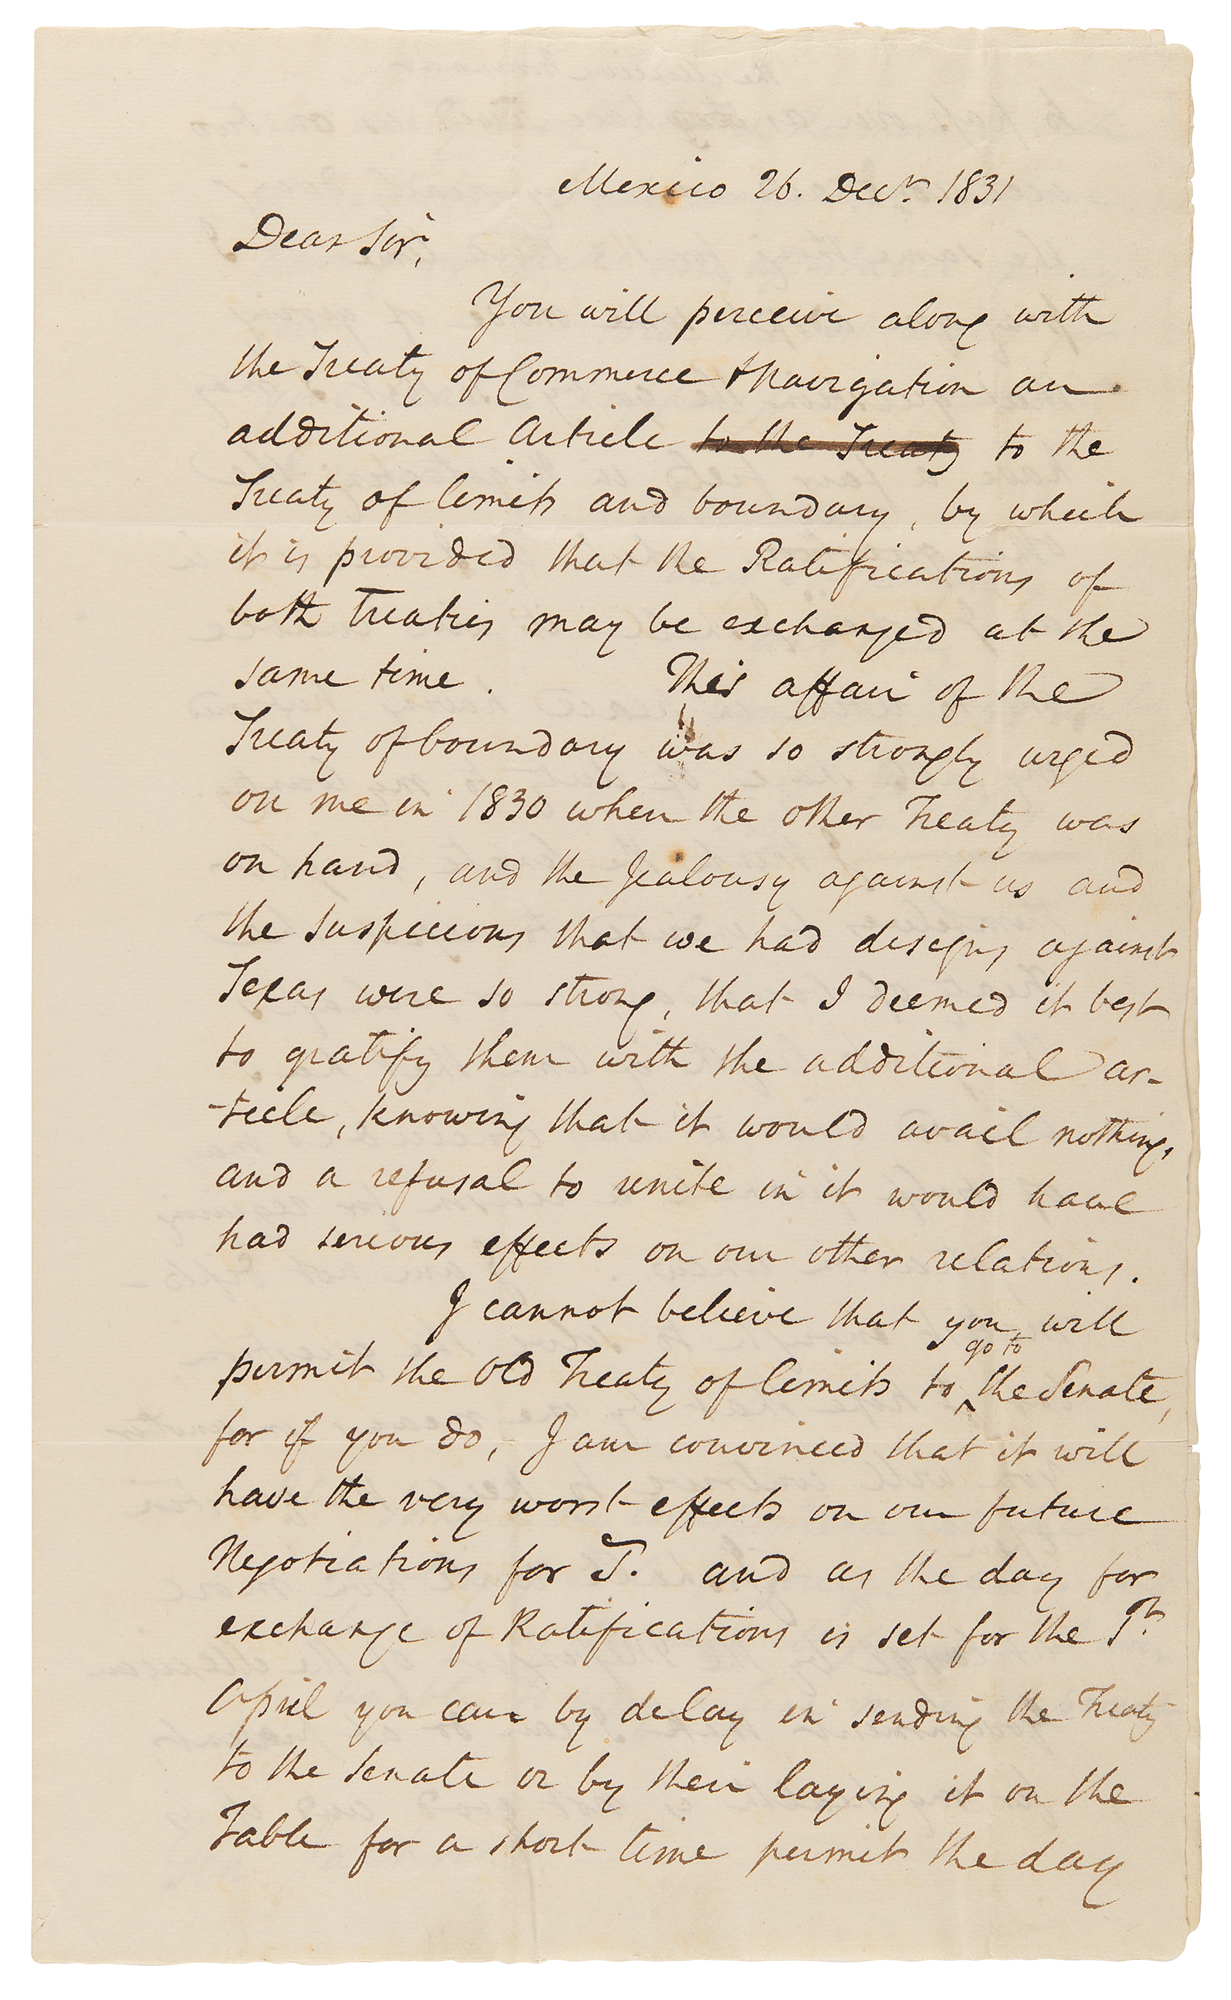 Mexico 26. Decr. 1831
Dear Sir,
You will perceive along with
the Treaty of Commerce & Navigation an
additional Article to the Treaty to the
Treaty of limits and boundary, by which
it is provided that the Ratifications of
both treaties may be exchanged at the
same time. This affair of the
Treaty of boundary was so strongly urged
on me in 1830 when the other Treaty was
on hand, and the Jealousy against us and
the suspicions that we had designs against
Texas were so strong, that I deemed it best
to gratify them with the additional ar-
-ticle, knowing that it would avail nothing,
and a refusal to unite in it would have
had serious effects on our other relations.
I cannot believe that you will
go to
permit the Old Treaty of limits to the Senate,
for if you do, I am convinced that it will
have the very worst effects on our future
Negotiations for T. and as the day for
exchange of Ratifications is set for the
April you can by delay in sending the Treaty
to the Senate or by their laying it on the
Table for a short time permit the day